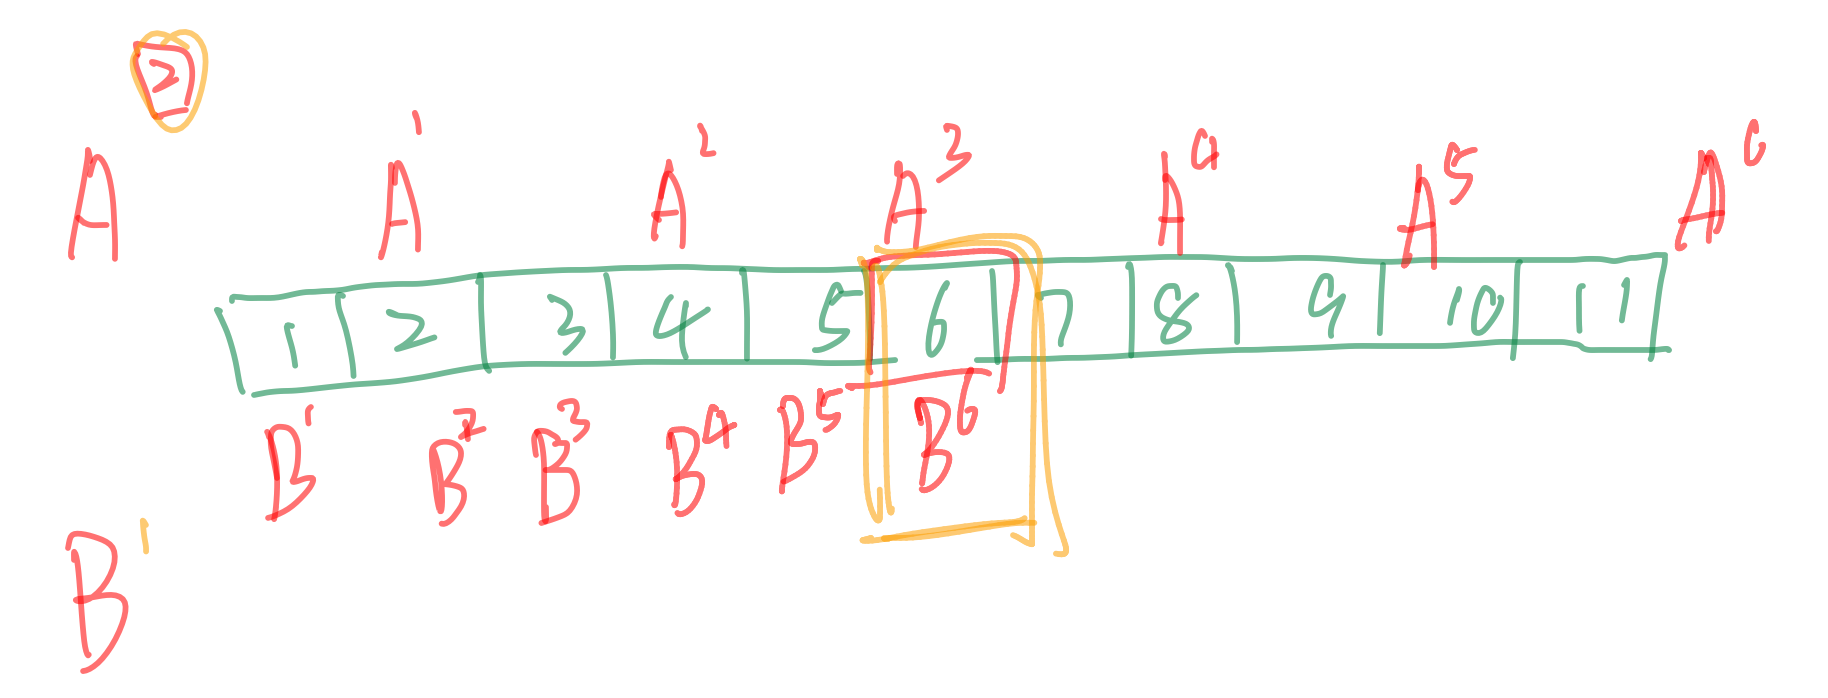 2
A A¹ A² A³ A⁴ A⁵ A⁶
1 2 3 4 5 6 7 8 9 10 11
B¹ B² B³ B⁴ B⁵ B⁶
B¹